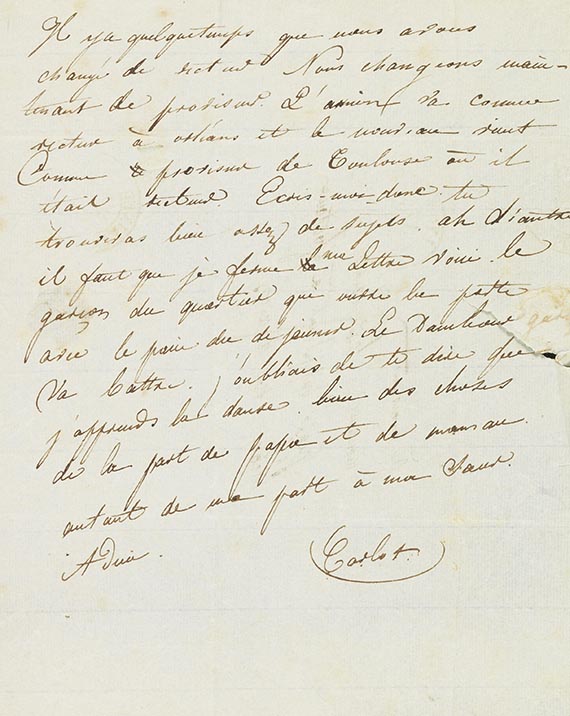 Il y a quelque temps que nous avons
changé de recteur Nous changeons main-
tenant de proviseur. L'ancien va comme
recteur à orléans et le nouveau vient
Comme proviseur de Toulouse où il
était recteur Ecris-moi donc tu
trouveras bien assez de sujets. ah diantre
il faut que je ferme ma Lettre voici le
garçon du quartier que ouvre la porte
avec le pain du dejeuner. Le Tambour
Va battre. j'oubliais de te dire que
j'apprends la danse. bien des choses
de la part de papa et de maman.
autant de ma part à ma Sœur.
Adieu.
Carlos.